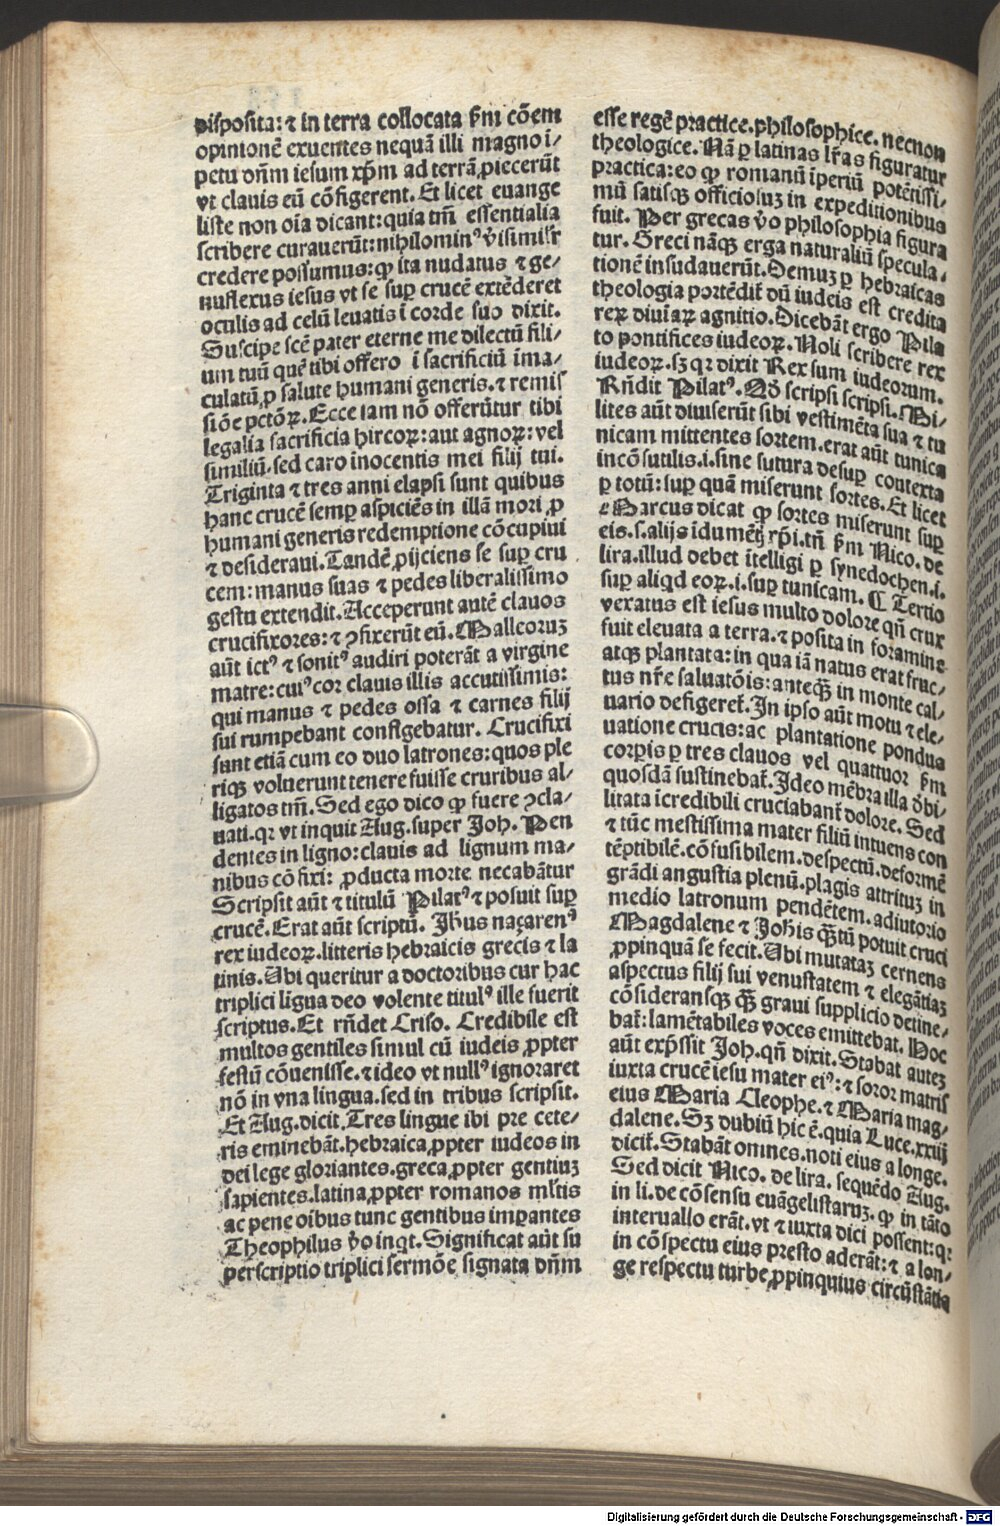 disposita: ⁊ in terra collocata ẜm cõem
opinionẽ exuentes nequã illi magno i-
petu dñm iesum xp̃m ad terrã ꝓiecerũt
vt clauis eũ cõfigerent. Et licet euange
liste non oĩa dicant: quia tm̃ essentialia
scribere curauerũt: nihilominꝰ v̓isimilr̃
credere possumus: ꝙ ita nudatus ⁊ ge-
nuflexus iesus vt se suꝑ crucẽ extẽderet
oculis ad celũ leuatis ĩ corde suo dixit.
Suscipe scẽ pater eterne me dilectũ fili-
um tuũ quẽ tibi offero ĩ sacrificiũ ĩma-
culatũ ꝓ salute humani generis. ⁊ remis
siõe pctõꝝ. Ecce iam nõ offerũtur tibi
legalia sacrificia hircoꝝ: aut agnoꝝ: vel
similiũ. sed caro ĩnocentis mei filij tui.
Triginta ⁊ tres anni elapsi sunt quibus
hanc crucẽ semꝑ aspiciẽs in illã mori ꝓ
humani generis redemptione cõcupiui
⁊ desideraui. Tandẽ ꝓijciens se suꝑ cru
cem: manus suas ⁊ pedes liberalissimo
gestu extendit. Acceperunt autẽ clauos
crucifixores: ⁊ ꝯfixerũt eũ. Malleoruꝫ
aũt ictꝰ ⁊ sonitꝰ audiri poterãt a virgine
matre: cuiꝰ cor clauis illis accutissimis:
qui manus ⁊ pedes ossa ⁊ carnes filij
sui rumpebant configebatur. Crucifixi
sunt etiã cum eo duo latrones: quos ple
riqꝫ voluerunt tenere fuisse cruribus al-
ligatos tm̃. Sed ego dico ꝙ fuere ꝯcla-
uati. qꝛ vt inquit Aug. super Joh. Pen
dentes in ligno: clauis ad lignum ma-
nibus cõfixi: ꝓducta morte necabãtur
Scripsit aũt ⁊ titulũ Pilatꝰ ⁊ posuit suꝑ
crucẽ. Erat aũt scriptũ. Jhũs naçarenꝰ
rex iudeoꝝ. litteris hebraicis grecis ⁊ la
tinis. Ubi queritur a doctoribus cur hac
triplici lĩgua deo volente titulꝰ ille fuerit
scriptus. Et rñdet Criso. Credibile est
multos gentiles simul cũ iudeis ꝓpter
festũ cõuenisse. ⁊ ideo vt nullꝰ ignoraret
nõ in vna lingua. sed in tribus scripsit.
Et Aug. dicit. Tres lingue ibi pre cete-
ris eminebãt. hebraica ꝓpter iudeos in
dei lege gloriantes. greca ꝓpter gentiuꝫ
sapientes. latina ꝓpter romanos ml̃tis
ac pene oĩbus tunc gentibus imꝑantes
Theophilus v̓o inqt. Significat aũt su
perscriptio triplici sermõe signata dñm
esse regẽ practice. philosophice. necnon
theologice. Nã ꝑ latinas lr̃as figuratur
practica: eo ꝙ romanũ ĩperiũ potẽtissi-
mũ satisqꝫ officiosuꝫ in expeditionibus
fuit. Per grecas v̓o philosophia figura
tur. Greci nãqꝫ erga naturaliũ specula-
tionẽ insudauerũt. Demuꝫ ꝑ hebraicas
theologia portẽdit̃ dũ iudeis est credita
reꝝ diuinaꝝ agnitio. Dicebãt ergo Pila
to pontifices iudeoꝝ. Noli scribere rex
iudeoꝝ. sꝫ qꝛ dixit Rex sum iudeorum.
Rñdit Pilatꝰ. Qd̓ scripsi scripsi. Mi-
lites aũt diuiserũt sibi vestimẽta sua ⁊ tu
nicam mittentes sortem. erat aũt tunica
incõsutilis. i. sine sutura desuꝑ contexta
ꝑ totũ: suꝑ quã miserunt sortes. Et licet
Marcus dicat ꝙ sortes miserunt suꝑ
eis. s. alijs ĩdumẽtꝭ xp̃i. tñ ẜm Nico. de
lira. illud debet ĩtelligi ꝑ synedochen. i.
suꝑ aliqd eoꝝ. i. suꝑ tunicam. ¶ Tertio
vexatus est iesus multo dolore qñ crux
fuit eleuata a terra. ⁊ posita in foramine
atqꝫ plantata: in qua iã natus erat fruc-
tus nr̃e saluatõis: anteqꝫ̃ in monte cal-
uario defigeret̃. In ipso aũt motu ⁊ ele-
uatione crucis: ac plantatione pondus
corꝑis ꝑ tres clauos vel quattuor ẜm
quosdã sustinebat̃. Jdeo mẽbra illa d̓bi-
litata ĩcredibili cruciabant̃ dolore. Sed
⁊ tũc mestissima mater filiũ intuens con
tẽptibilẽ. cõfusibilem. despectũ. deformẽ
grãdi angustia plenũ. plagis attrituꝫ in
medio latronum pendẽtem. adiutorio
Magdalene ⁊ Johis qꝫ̃tũ potuit cruci
ꝓpinquã se fecit. Ubi mutataꝫ cernens
aspectus filij sui venustatem ⁊ elegãtiaꝫ
cõsideransqꝫ qꝫ̃ graui supplicio detine-
bat̃: lamẽtabiles voces emittebat. Hoc
aũt exp̃ssit Joh. qñ dixit. Stabat auteꝫ
iuxta crucẽ iesu mater eiꝰ: ⁊ soror matris
eius Maria Cleophe. ⁊ Maria mag-
dalene. Sꝫ dubiũ hic ẽ. quia Luce. xxiij
dicit̃. Stabãt omnes. noti eius a longe.
Sed dicit Nico. de lira. sequẽdo Aug.
in li. de cõsensu euãgelistaruꝫ. ꝙ in tãto
interuallo erãt. vt ⁊ iuxta dici possent: qꝛ
in cõspectu eius presto aderãt: ⁊ a lon-
ge respectu turbe ꝓpinquius circũstãtis
Digitalisierung gefördert durch die Deutsche Forschungsgemeinschaft - DFG